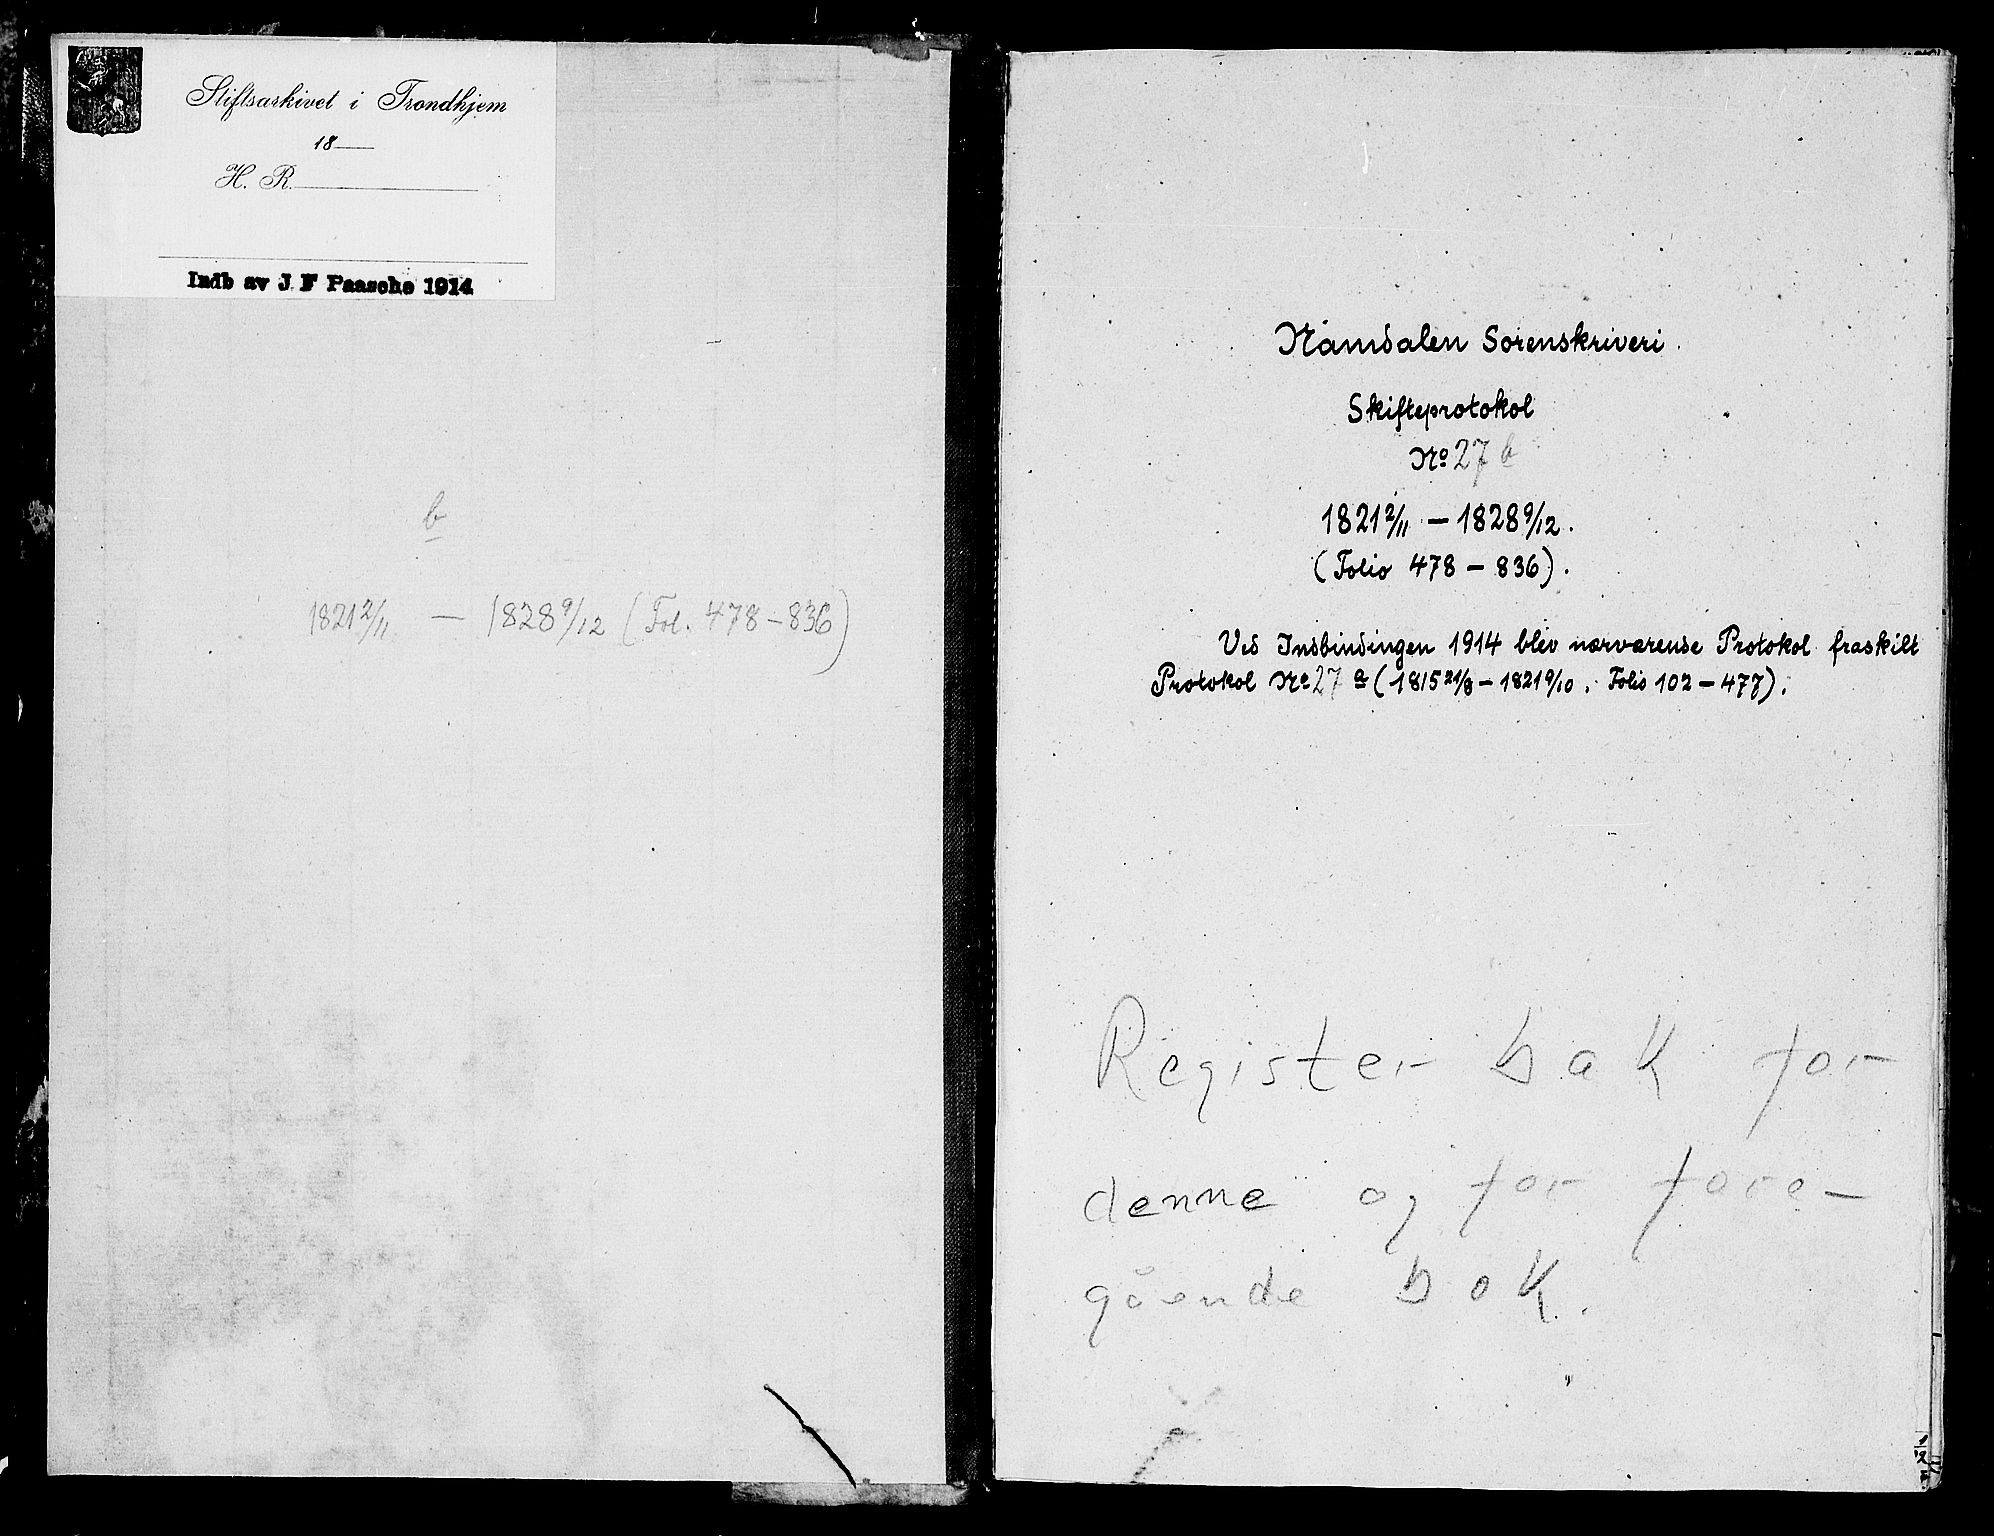 Stiftsarkivet i Trondhjem
18
H. R.
Indb av J F Paasche 1914
b
1821 2/11 — 1828 9/12 (Fol. 478-836)
Namdalen Sorenskriveri.
Skifteprotokol
No 27 b
1821 2/11 — 1828 9/12.
(Folio 478 — 836).
Ved Indbindingen 1914 blev nærværende Protokol fraskilt
Protokol No 27 a (1815 21/8 — 1821 9/10. Folio 102 — 477).
Register bak for
denne og for fore-
gående bok.